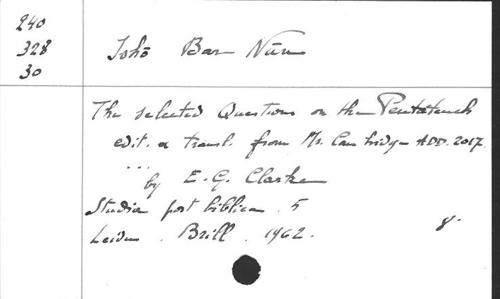 240
328
30
Išhō Bar Nūn
The selected Questions on the Pentateuch
edit. a transl. from Ms. Cambridge ADD. 2017.
...
by E.G. Clarke
Studia post biblica. 5
Leiden. Brill. 1962.
8°